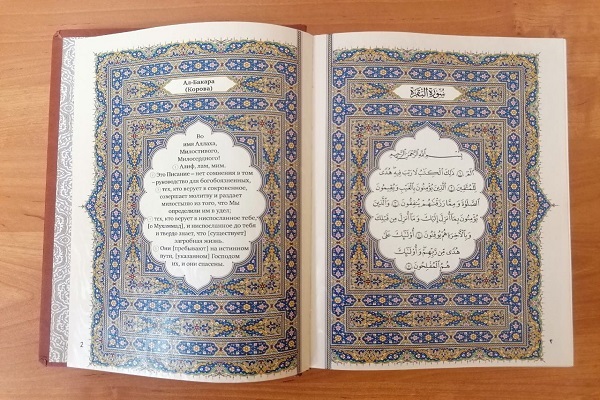 Ал-Бакара
(Корова)
Во
имя Аллаха,
Милостивого,
Милосердного!
Алиф, лам, мим.
Это Писание – нет сомнения в том –
руководство для богобоязненных,
тех, кто верует в сокровенное,
совершает молитву и раздает
милостыню из того, что Мы
определили им в удел;
тех, кто верует в ниспосланное тебе,
[о Мухаммад], и ниспосланное до тебя
и твердо знает, что [существует]
загробная жизнь.
Они [пребывают] на истинном
пути, [указанном] Господом
их, и они спасены.
2
سُورَةُ الْبَقَرَةِ
بِسْمِ اللَّهِ الرَّحْمَٰنِ الرَّحِيمِ
الٓمٓ ۝ ذَٰلِكَ ٱلْكِتَٰبُ لَا رَيْبَ فِيهِ هُدًى
لِّلْمُتَّقِينَ ۝ ٱلَّذِينَ يُؤْمِنُونَ بِٱلْغَيْبِ وَيُقِيمُونَ
ٱلصَّلَوٰةَ وَمِمَّا رَزَقْنَٰهُمْ يُنفِقُونَ ۝ وَٱلَّذِينَ
يُؤْمِنُونَ بِمَآ أُنزِلَ إِلَيْكَ وَمَآ أُنزِلَ مِن قَبْلِكَ
وَبِٱلْءَاخِرَةِ هُمْ يُوقِنُونَ ۝ أُو۟لَٰٓئِكَ عَلَىٰ
هُدًى مِّن رَّبِّهِمْ وَأُو۟لَٰٓئِكَ
هُمُ ٱلْمُفْلِحُونَ ۝